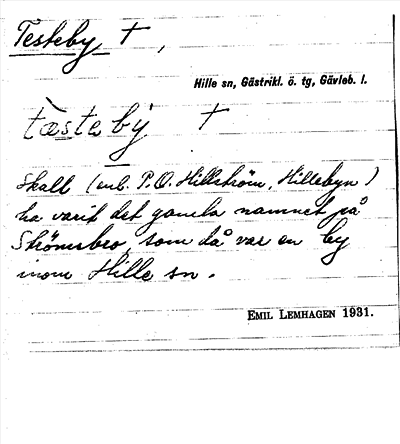 Testeby †,
Hille sn, Gästrikl. ö. tg, Gävleb. l.
tæsteby †
Skall (enl. P.O. Hillström, Hillebyn)
ha varit det gamla namnet på
Strömsbro, som då var en by
inom Hille sn.
EMIL LEMHAGEN 1931.